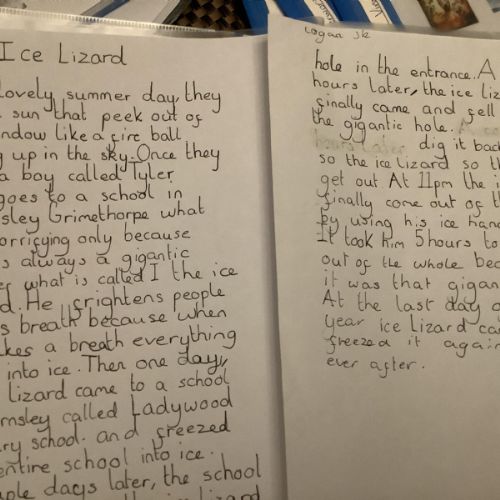 Ice Lizard
lovely summer day, they
sun that peek out of
ndow like a fire ball
g up in the sky. Once they
a boy called Tyler
goes to a school in
sley Grimethorpe what
orrifying only because
s always a gigantic
er what is called I the ice
d. He frightens people
s breath because when
kes a breath everything
into ice. Then one day,
lizard came to a school
rnsley called Ladywood
ry school. and freezed
entire school into ice.
ple days later, the school
Logan
hole in the entrance. A
hours later, the ice liz
finally came and fell
the gigantic hole.
hours later dig it back
so the ice lizard so th
get out At 11pm the i
finally come out of th
by using his ice hand
It took him 5 hours to
out of the whole bec
it was that gigan
At the last day o
year ice lizard ca
freezed it again
ever after.